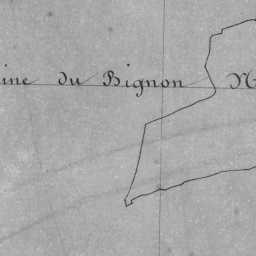 ine du Bignon